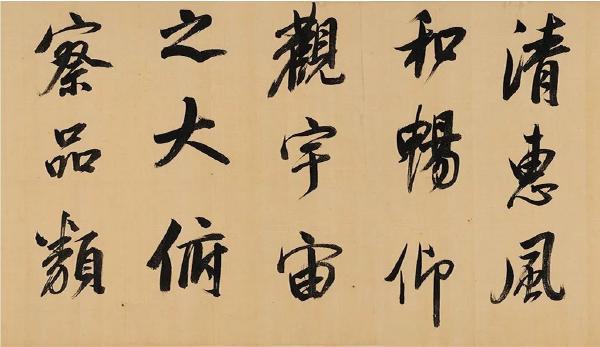 清惠風
和暢仰
觀宇宙
之大俯
察品類